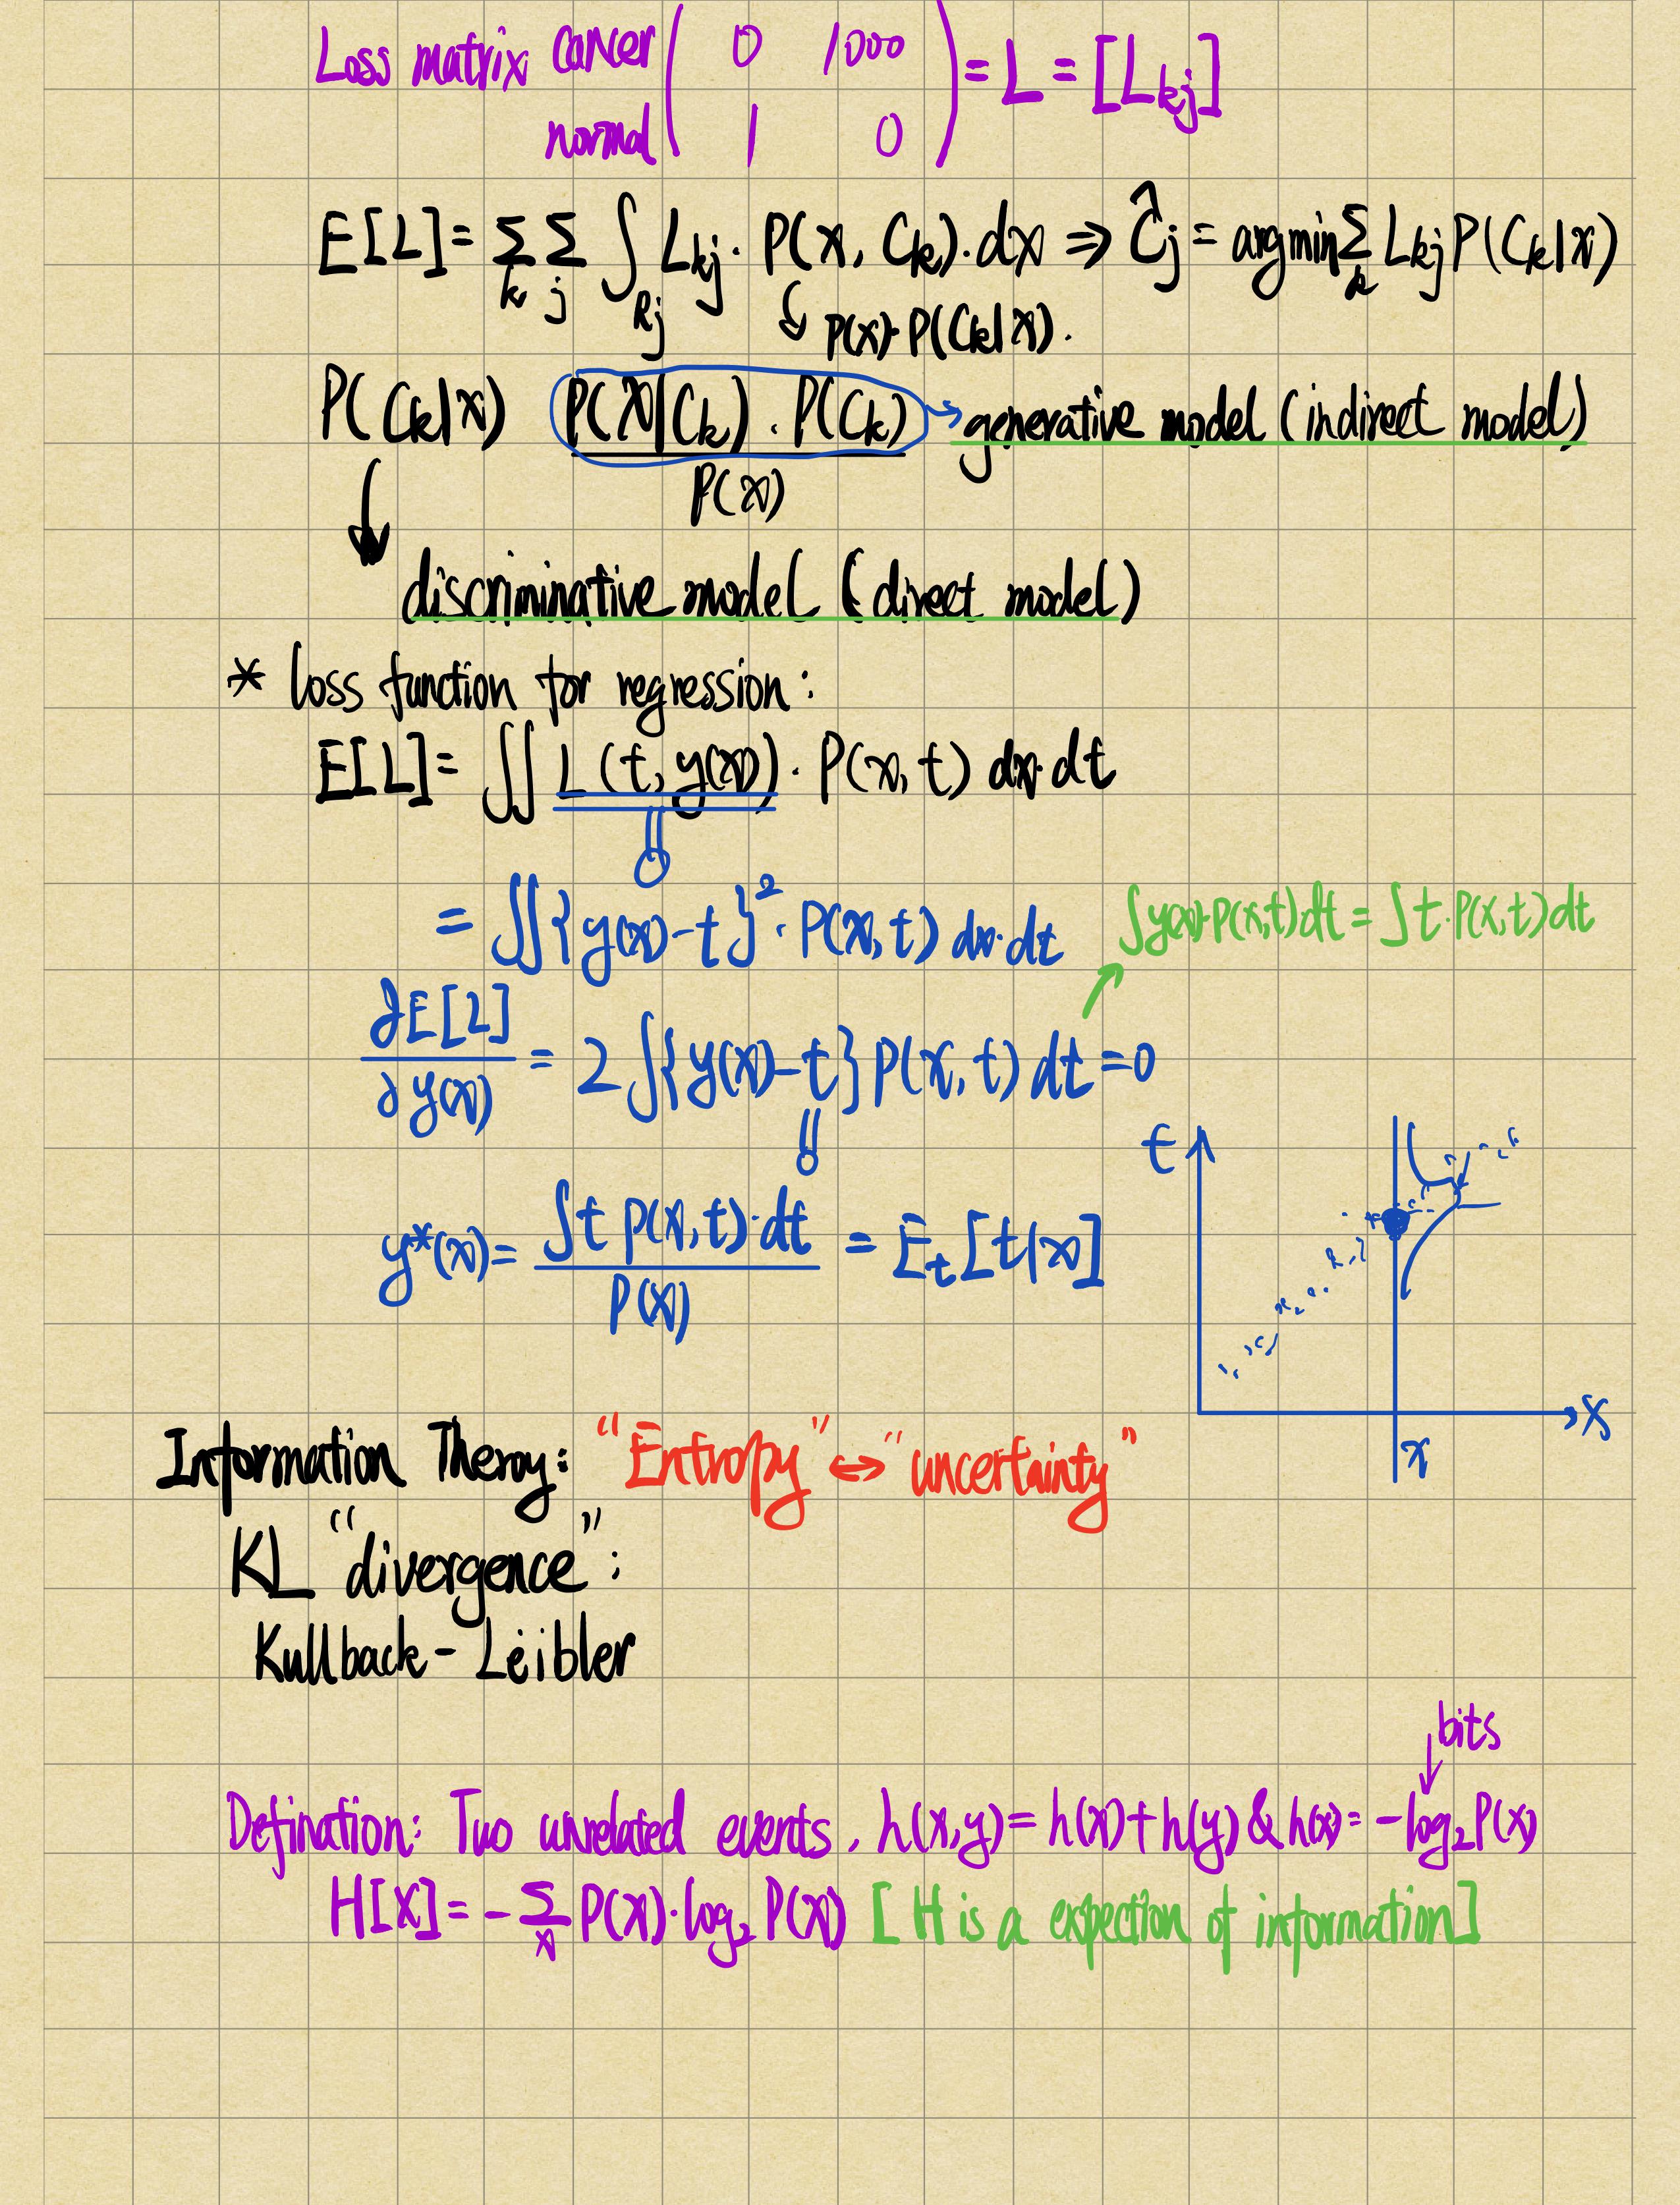 Loss matrix cancer ( 0 1000 ) = L = [Lkj]
normal ( 1 0 )
E[L] = Σk Σj ∫Rj Lkj · P(x, Ck) · dx ⇒ Ĉj = argmin Σk Lkj P(Ck|x)
P(x)·P(Ck|x).
P(Ck|x) P(X|Ck) · P(Ck) → generative model (indirect model)
P(x)
discriminative model (direct model)
* loss function for regression:
E[L] = ∬ L(t, y(x)) · P(x, t) dx·dt
= ∬{y(x)-t}² · P(x, t) dx·dt
∫y(x)·P(x,t)dt = ∫t·P(x,t)dt
∂E[L]/∂y(x) = 2∫{y(x)-t}P(x, t) dt = 0
y*(x) = ∫t p(x,t)·dt / P(x) = Et[t|x]
t
x
x
Information Theroy: "Entropy" ↔ "uncertainty"
KL "divergence":
Kullback - Leibler
bits
Defination: Two unrelated events, h(x,y) = h(x)+h(y) & h(x) = -log₂P(x)
H[X] = -Σx P(x)·log₂ P(x) [H is a expection of information]